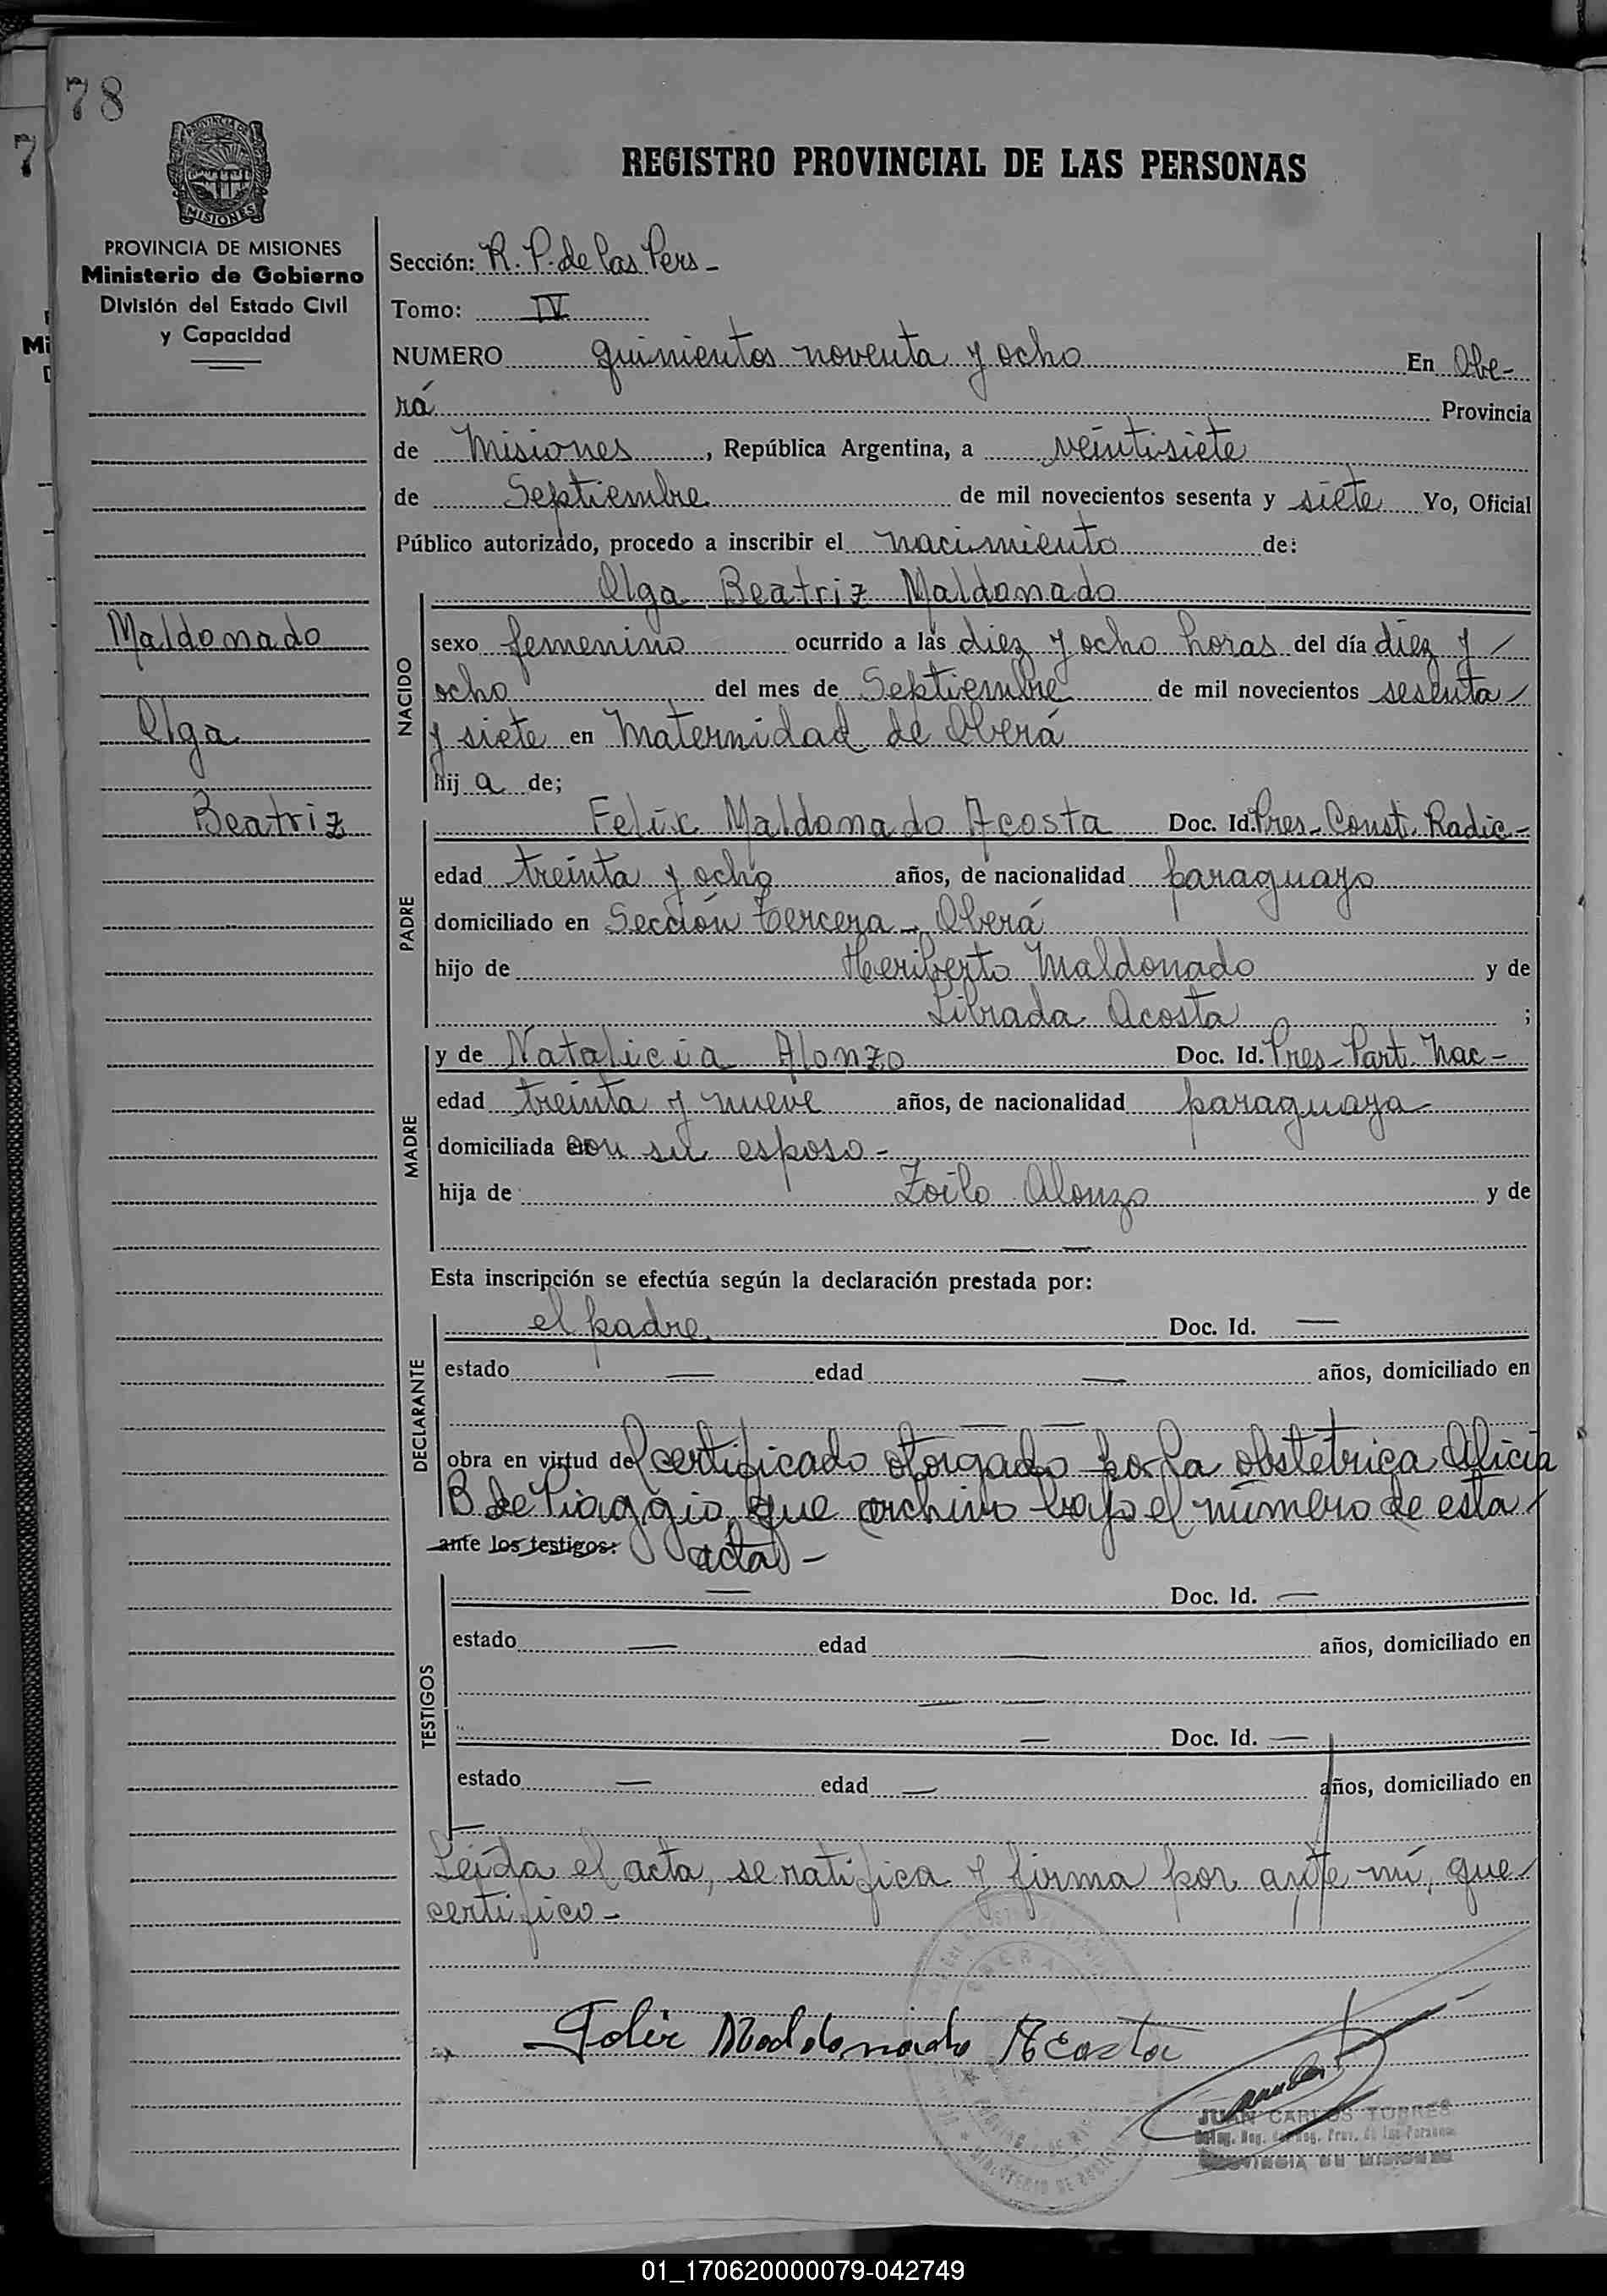 78
7
PROVINCIA DE
MISIONES
REGISTRO PROVINCIAL DE LAS PERSONAS
PROVINCIA DE MISIONES
Ministerio de Gobierno
División del Estado Civil
y Capacidad
Mi
Sección: R. P. de las Pers -
Tomo: IV
NUMERO quinientos noventa y ocho En Obe-
rá Provincia
de Misiones, República Argentina, a veintisiete
de Septiembre de mil novecientos sesenta y siete Yo, Oficial
Público autorizado, procedo a inscribir el nacimiento de:
Olga Beatriz Maldonado
Maldonado
Olga
Beatriz
NACIDO
sexo femenino ocurrido a las diez y ocho horas del día diez y /
ocho del mes de Septiembre de mil novecientos sesenta /
y siete en Maternidad de Oberá
hij a de;
PADRE
Felix Maldonado Acosta Doc. Id. Pres - Const. Radic -
edad treinta y ocho años, de nacionalidad paraguayo
domiciliado en Sección tercera - Oberá
hijo de Heriberto Maldonado y de
Librada Acosta ;
MADRE
y de Natalicia Alonzo Doc. Id. Pres - Part. Nac -
edad treinta y nueve años, de nacionalidad paraguaya -
domiciliada con su esposo -
hija de Zoilo Alonzo y de
— —
Esta inscripción se efectúa según la declaración prestada por:
DECLARANTE
el padre Doc. Id. —
estado — edad — años, domiciliado en
— —
obra en virtud del certificado otorgado por la obstetrica Alicia
B de Piaggio que archivo bajo el número de esta /
ante los testigos: acta -
TESTIGOS
— Doc. Id. —
estado — edad — años, domiciliado en
— —
— Doc. Id. —
estado — edad — años, domiciliado en
Leida el acta, se ratifica y firma por ante mí, que /
certifico -
Felix Maldonado Acosta
JUAN CARLOS TORRES
PROVINCIA DE MISIONES
01_170620000079-042749